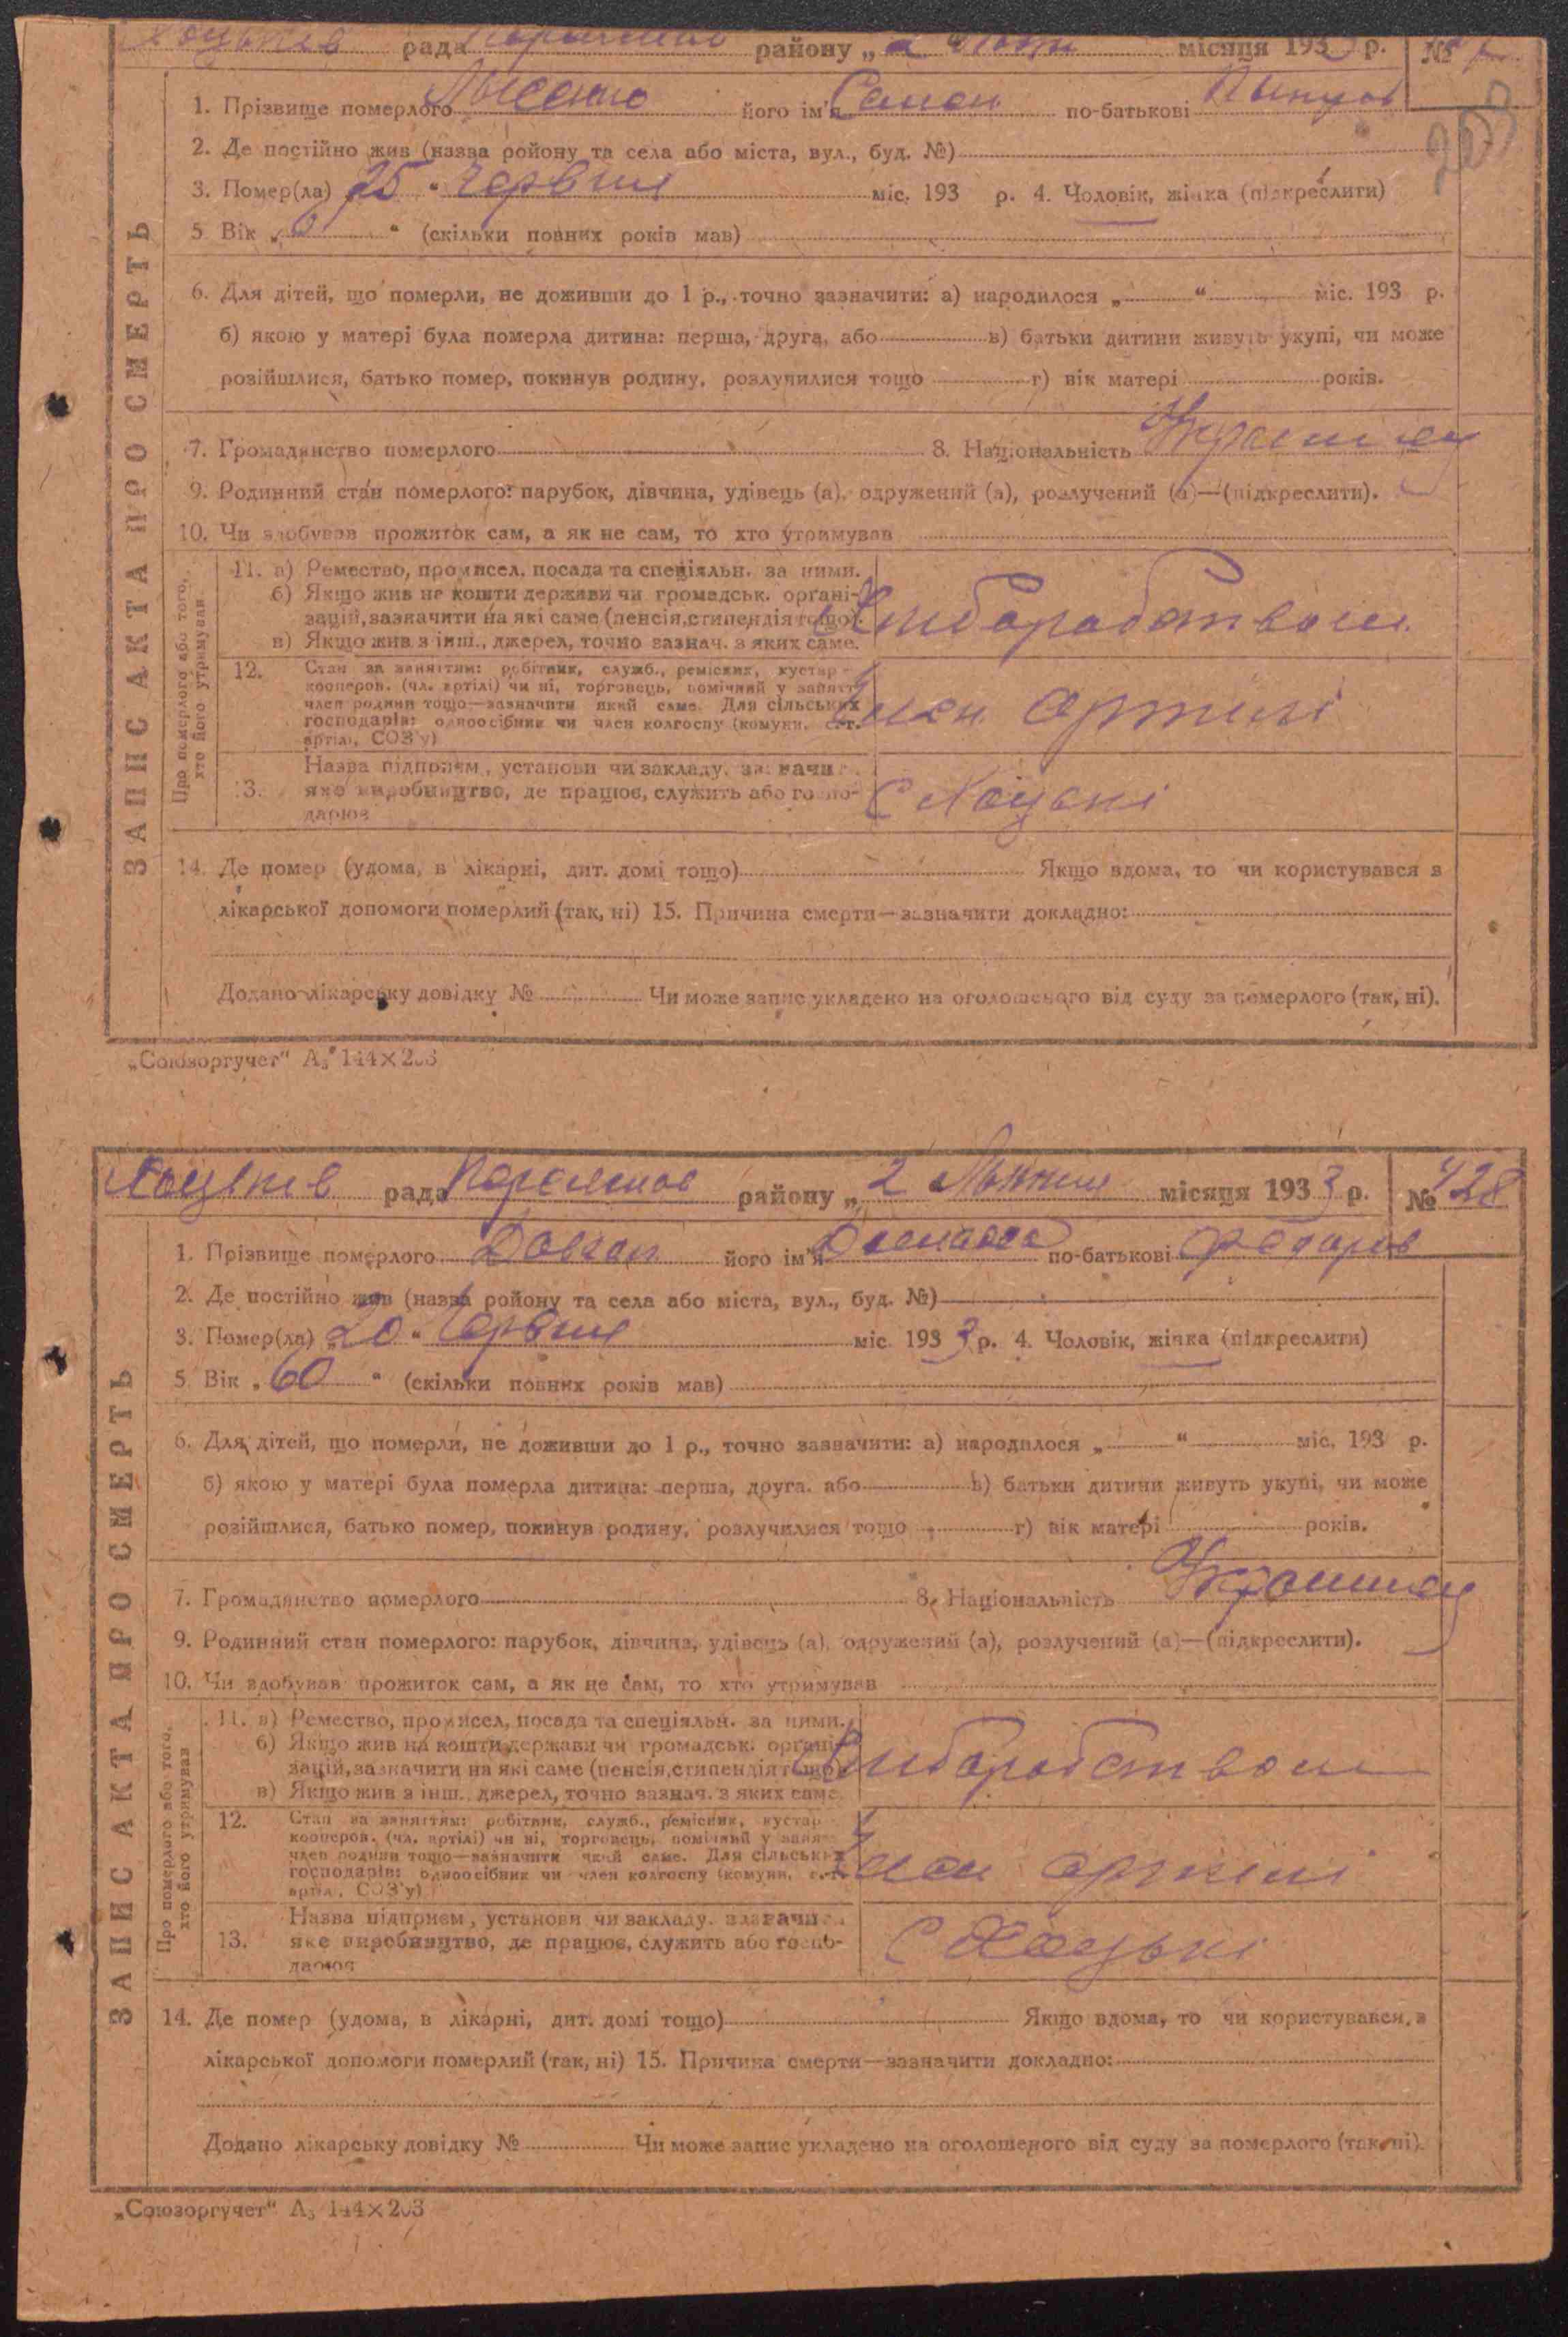 рада району „ місяця 193 р. №
1. Прізвище померлого його ім'я Семен по-батькові
2. Де постійно жив (назва ройону та села або міста, вул., буд. №)
3. Помер(ла) „25 “ Червня міс. 193 р. 4. Чоловік, жінка (підкреслити)
5 Вік „ 6 “ (скільки повних років мав)
6. Для дітей, що померли, не доживши до 1 р., точно зазначити: а) народилося „ “ міс. 193 р.
б) якою у матері була померла дитина: перша, друга, або в) батьки дитини живуть укупі, чи може
розійшлися, батько помер, покинув родину, розлучилися тощо г) вік матері років.
7. Громадянство померлого 8. Національність
9. Родинний стан померлого: парубок, дівчина, удівець (а), одружений (а), розлучений (а)—(підкреслити).
10. Чи здобував прожиток сам, а як не сам, то хто утримував
ЗАПИС АКТА ПРО СМЕРТЬ
Про померлого або того,
хто його утримував
11. а) Ремество, промисел, посада та спеціяльн. за ними.
б) Якщо жив на кошти держави чи громадськ. організацій, зазначити на які саме (пенсія, стипендія тощо)
в) Якщо жив з інш., джерел, точно зазнач. з яких саме.
12. Стан за заняттям: робітник, служб., ремісник, кустар
кооперов. (чл. артілі) чи ні, торговець, помічний у занят
член родини тощо—зазначити який саме. Для сільських
господарів: одноосібник чи член колгоспу (комуни, с.-г.
артілі, СОЗ'у)
член артілі
Назва підприєм., установи чи закладу, зазначи
13. яке виробництво, де працює, служить або госпо-
дарює
с Хоцькі
14. Де помер (удома, в лікарні, дит. домі тощо) Якщо вдома, то чи користувався з
лікарської допомоги померлий (так, ні) 15. Причина смерти—зазначити докладно:
Додано лікарську довідку № Чи може запис укладено на оголошеного від суду за померлого (так, ні).
„Союзоргучет“ А₅ 144×203
Хоцьків рада району „ 2 Липня місяця 1933 р. № 428
1. Прізвище померлого Довган його ім'я по-батькові Федоров
2. Де постійно жив (назва ройону та села або міста, вул., буд. №)
3. Помер(ла) „20 “ Червня міс 1933 р. 4. Чоловік, жінка (підкреслити)
5 Вік „ 60 “ (скільки повних років мав)
6. Для дітей, що померли, не доживши до 1 р., точно зазначити: а) народилося „ “ міс. 193 р.
б) якою у матері була померла дитина: перша, друга, або в) батьки дитини живуть укупі, чи може
розійшлися, батько помер, покинув родину, розлучилися тощо г) вік матері років.
7. Громадянство померлого 8. Національність
9. Родинний стан померлого: парубок, дівчина, удівець (а), одружений (а), розлучений (а)—(підкреслити).
10. Чи здобував прожиток сам, а як не сам, то хто утримував
ЗАПИС АКТА ПРО СМЕРТЬ
Про померлого або того,
хто його утримував
11. а) Ремество, промисел, посада та спеціяльн. за ними.
б) Якщо жив на кошти держави чи громадськ. організацій, зазначити на які саме (пенсія, стипендія тощо)
в) Якщо жив з інш., джерел, точно зазнач. з яких саме.
12. Стан за заняттям: робітник, служб., ремісник, кустар
кооперов. (чл. артілі) чи ні, торговець, помічний у занят
член родини тощо—зазначити який саме. Для сільських
господарів: одноосібник чи член колгоспу (комуни, с.-г.
артіл., СОЗ'у)
член артілі
Назва підприєм., установи чи закладу, зазначи
13. яке виробництво, де працює, служить або госпо-
дарює
с Хоцькі
14. Де помер (удома, в лікарні, дит. домі тощо) Якщо вдома, то чи користувався з
лікарської допомоги померлий (так, ні) 15. Причина смерти—зазначити докладно:
Додано лікарську довідку № Чи може запис укладено на оголошеного від суду за померлого (так, ні).
„Союзоргучет“ А₅ 144×203